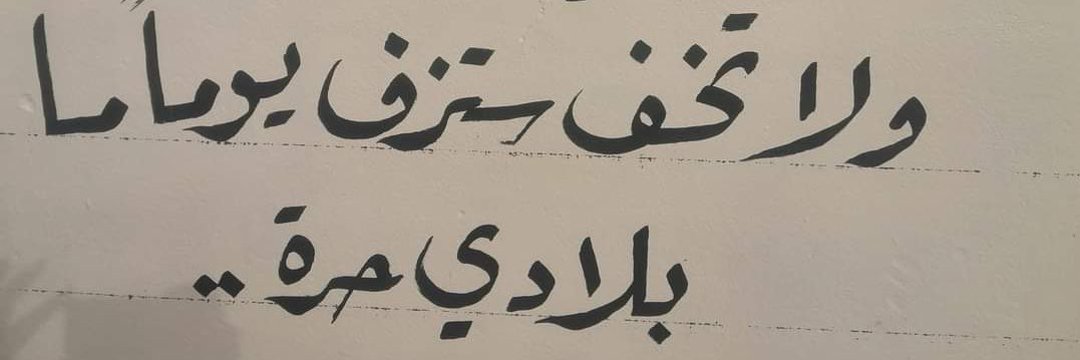 ولا تخف ستزف يوماً ما
بلادي حرة ..